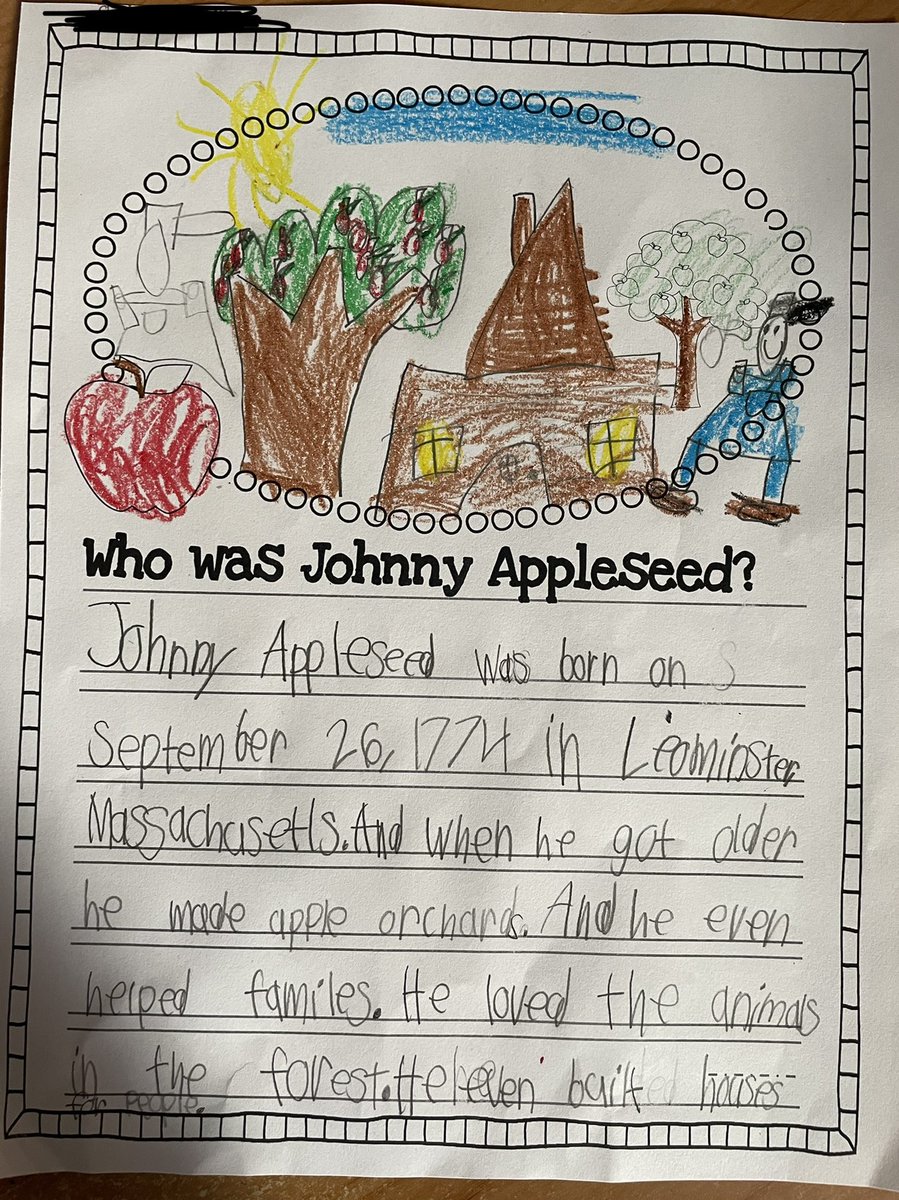 Who was Johnny Appleseed?
Johnny Appleseed was born on S
September 26, 1774 in Leominster,
Massachasetts. And when he got older
he made apple orchards. And he even
helped familes. He loved the animals
in the forest. He even built houses
for people.